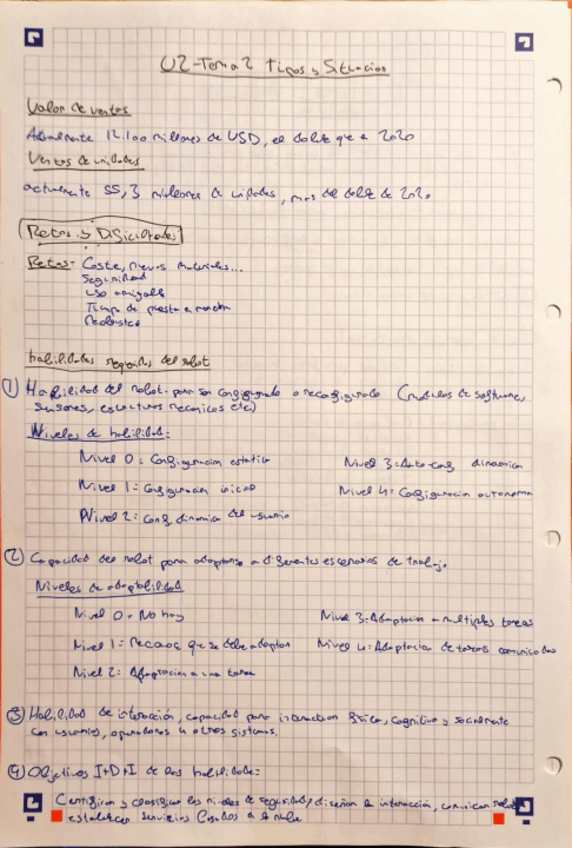 U2-Tema 2 Tipos y Situacion
Valor de ventas
Actualmente 12.100 millones de USD, el doble que en 2020
Ventas de unidades
actualmente 55,3 millones de unidades, mas del doble de 2020
Retos y Dificultades
Retos: Coste, nuevos materiales...
Seguridad
uso amigable
Tiempo de puesta en marcha
habilidades requeridas del robot
① Habilidad del robot para ser configurado o reconfigurado (modulos de software,
sensores, estructuras mecanicas etc)
Niveles de habilidad:
Nivel 0: Configuracion estatica
Nivel 3: Auto-conf dinamica
Nivel 1: Configuracion inicial
Nivel 4: Configuracion autonoma
Nivel 2: Conf. dinamica del usuario
② Capacidad del robot para adaptarse a diferentes escenarios de trabajo.
Niveles de adaptabilidad
Nivel 0 = No hay
Nivel 3: Adaptacion a multiples tareas
Nivel 1: que se debe adaptar
Nivel 4: Adaptacion de tareas comunicadas
Nivel 2: Adaptacion a una tarea
③ Habilidad de interacción, capacidad para interactuar fisica, cognitiva y socialmente
con usuarios, operadores u otros sistemas.
④ Objetivos I+D+I de las habilidades:
y clasificar los niveles de seguridad, diseñar la interacción, comunicar
establecer servicios basados a la nube